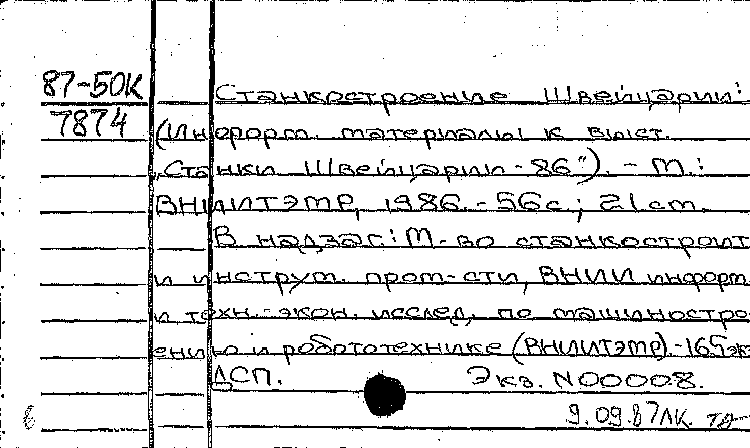 87-50К
7874
Станкостроение Швейцарии:
(Информ. материалы к выст.
„Станки Швейцарии-86"). - М.:
ВНИИТЭМР, 1986.-56с.; 21см.
В надзаг.: М-во станкостроит
и инструм. пром-сти, ВНИИ информ.
и техн.-экон. исслед. по машиностро-
ению и робототехнике (ВНИИТЭМР).-165эк
ДСП. Экз. N00008.
9.09.87ЛК.